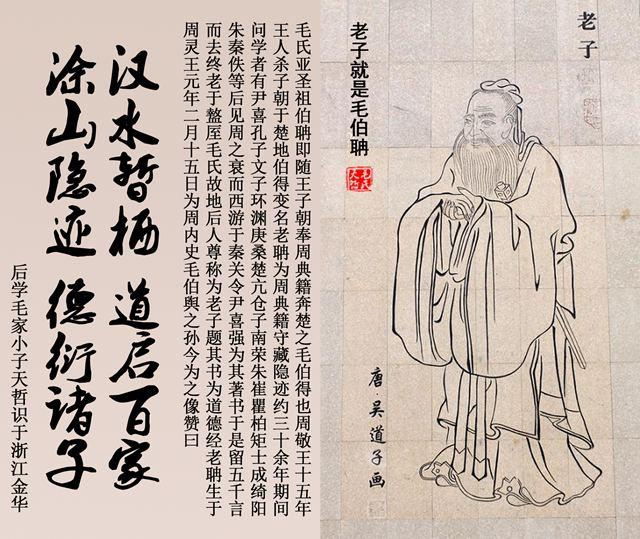 老子
唐吴道子画
老子就是毛伯聃
毛氏亚圣祖伯聃即随王子朝奉周典籍奔楚之毛伯得也周敬王十五年
王人杀子朝于楚地伯得变名老聃为周典籍守藏隐迹约三十余年期间
问学者有尹喜孔子文子环渊庚桑楚亢仓子南荣朱崔瞿柏矩士成绮阳
朱秦佚等后见周之衰而西游于秦关令尹喜强为其著书于是留五千言
而去终老于盩厔毛氏故地后人尊称为老子题其书为道德经老聃生于
周灵王元年二月十五日为周内史毛伯舆之孙今为之像赞曰
汉水暂栖 道启百家
涂山隐迹 德衍诸子
后学毛家小子天哲识于浙江金华